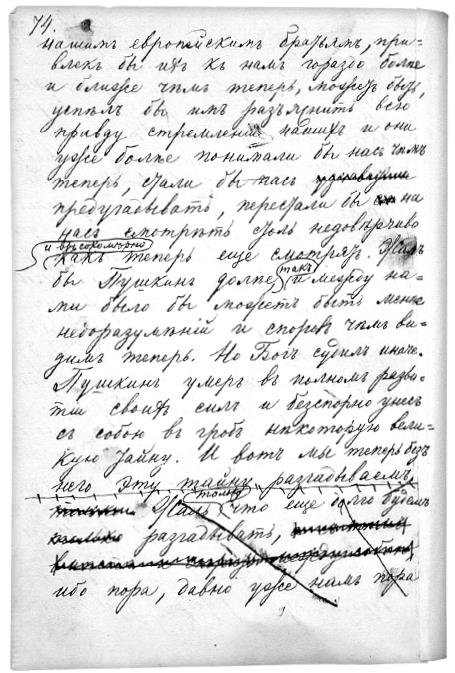 74.
нашимъ европейскимъ братьямъ, при-
влекъ бы ихъ къ намъ гораздо болѣе
и ближе чѣмъ теперь, можетъ быть,
успѣлъ бы имъ разъяснить всю
правду стремленій нашихъ и они
уже болѣе понимали бы насъ чѣмъ
теперь, стали бы насъ
предугадывать, перестали бы на
насъ смотрѣть столь недовѣрчиво
и высокомѣрно
какъ теперь еще смотрятъ. Жилъ
бы Пушкинъ долѣе, такъ и между на-
ми было бы можетъ быть менѣе
недоразумѣній и споровъ чѣмъ ви-
димъ теперь. Но Богъ судилъ иначе.
Пушкинъ умеръ въ полномъ разви-
тіи своихъ силъ и безспорно унесъ
съ собою въ гробъ нѣкоторую вели-
кую тайну. И вотъ мы теперь безъ
него эту тайну разгадываемъ.
Жаль только что еще долго будемъ
разгадывать,
ибо пора, давно уже намъ пора